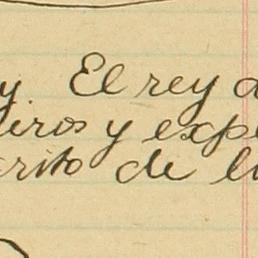 y. El rey a
eros y exp
crito de l